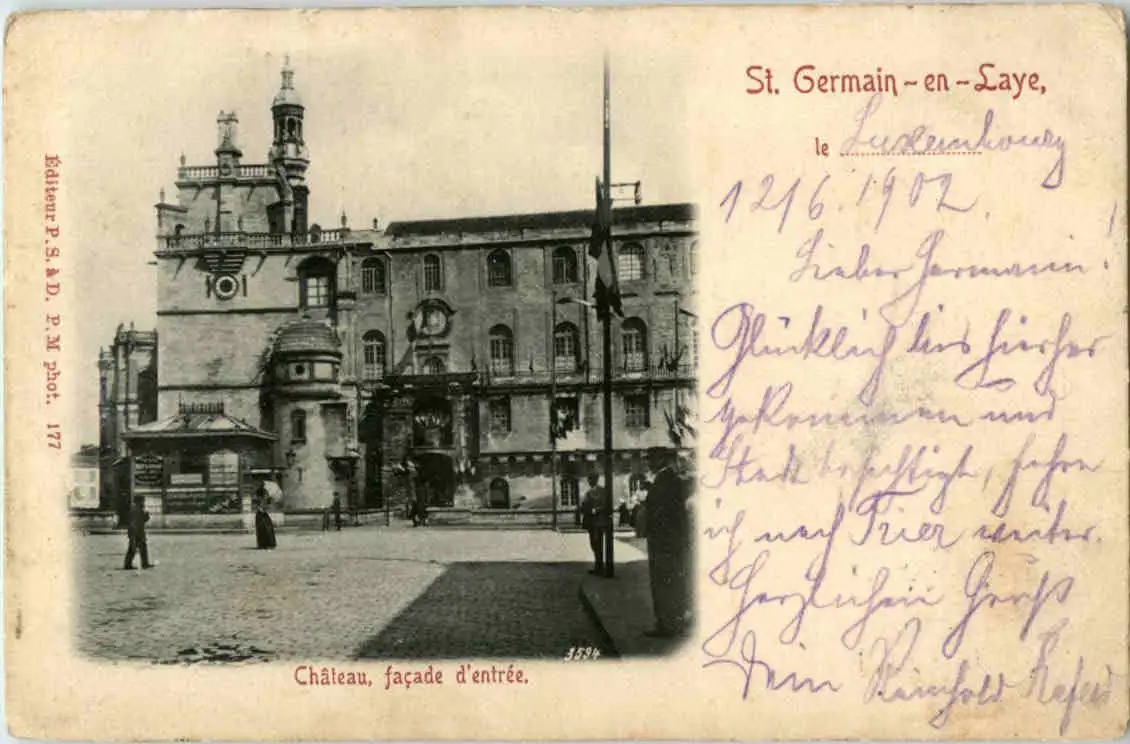 St. Germain-en-Laye,
le Luxembourg
12/6. 1902.
Lieber Hermann!
Glücklich bis hierher
gekommen und
Stadt besichtigt, fahre
ich nach Trier weiter.
Herzlichen Gruß
Dein Reinhold
Éditeur P. S. à D. P. M phot. 177
3594
Château, façade d'entrée.